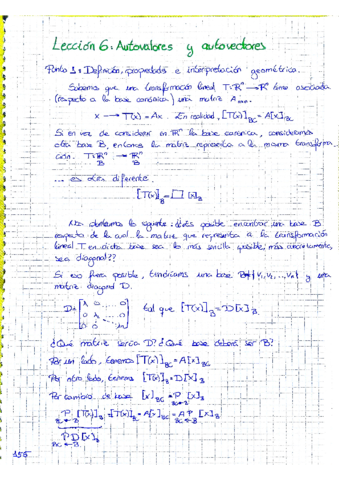 Lección 6: Autovalores y autovectores
Punto 1: Definición, propiedades e interpretación geométrica.
Sabemos que una transformación lineal T: ℝⁿ → ℝⁿ tiene asociada
(respecto a la base canónica) una matriz Aₙₓₙ.
x → T(x) = Ax. En realidad, [T(x)]_BC = A[x]_BC.
Si en vez de considerar en ℝⁿ la base canónica, consideramos
otra base B, entonces la matriz que representa a la misma transforma-
ción. T: ℝⁿ → ℝⁿ
B B
... es otra diferente.
[T(x)]_B = □ [x]_B
Nos planteamos lo siguiente: ¿es posible encontrar una base B
respecto de la cual la matriz que representa a la transformación
lineal T en dicha base sea lo más sencilla posible; más concretamente,
sea diagonal??
Si eso fuera posible, tendríamos una base B = {v₁, v₂, ..., vₙ} y una
matriz diagonal D.
tal que [T(x)]_B = D[x]_B.
¿Qué matriz sería D? ¿Qué base debería ser B?
Por un lado, tenemos [T(x)]_BC = A[x]_BC
Por otro lado, tenemos [T(x)]_B = D[x]_B
Por cambio de base [x]_BC = P [x]_B
BC ← B
P [T(x)]_B = [T(x)]_BC = A[x]_BC = A P [x]_B
BC ← B BC ← B
P D [x]_B
BC ← B